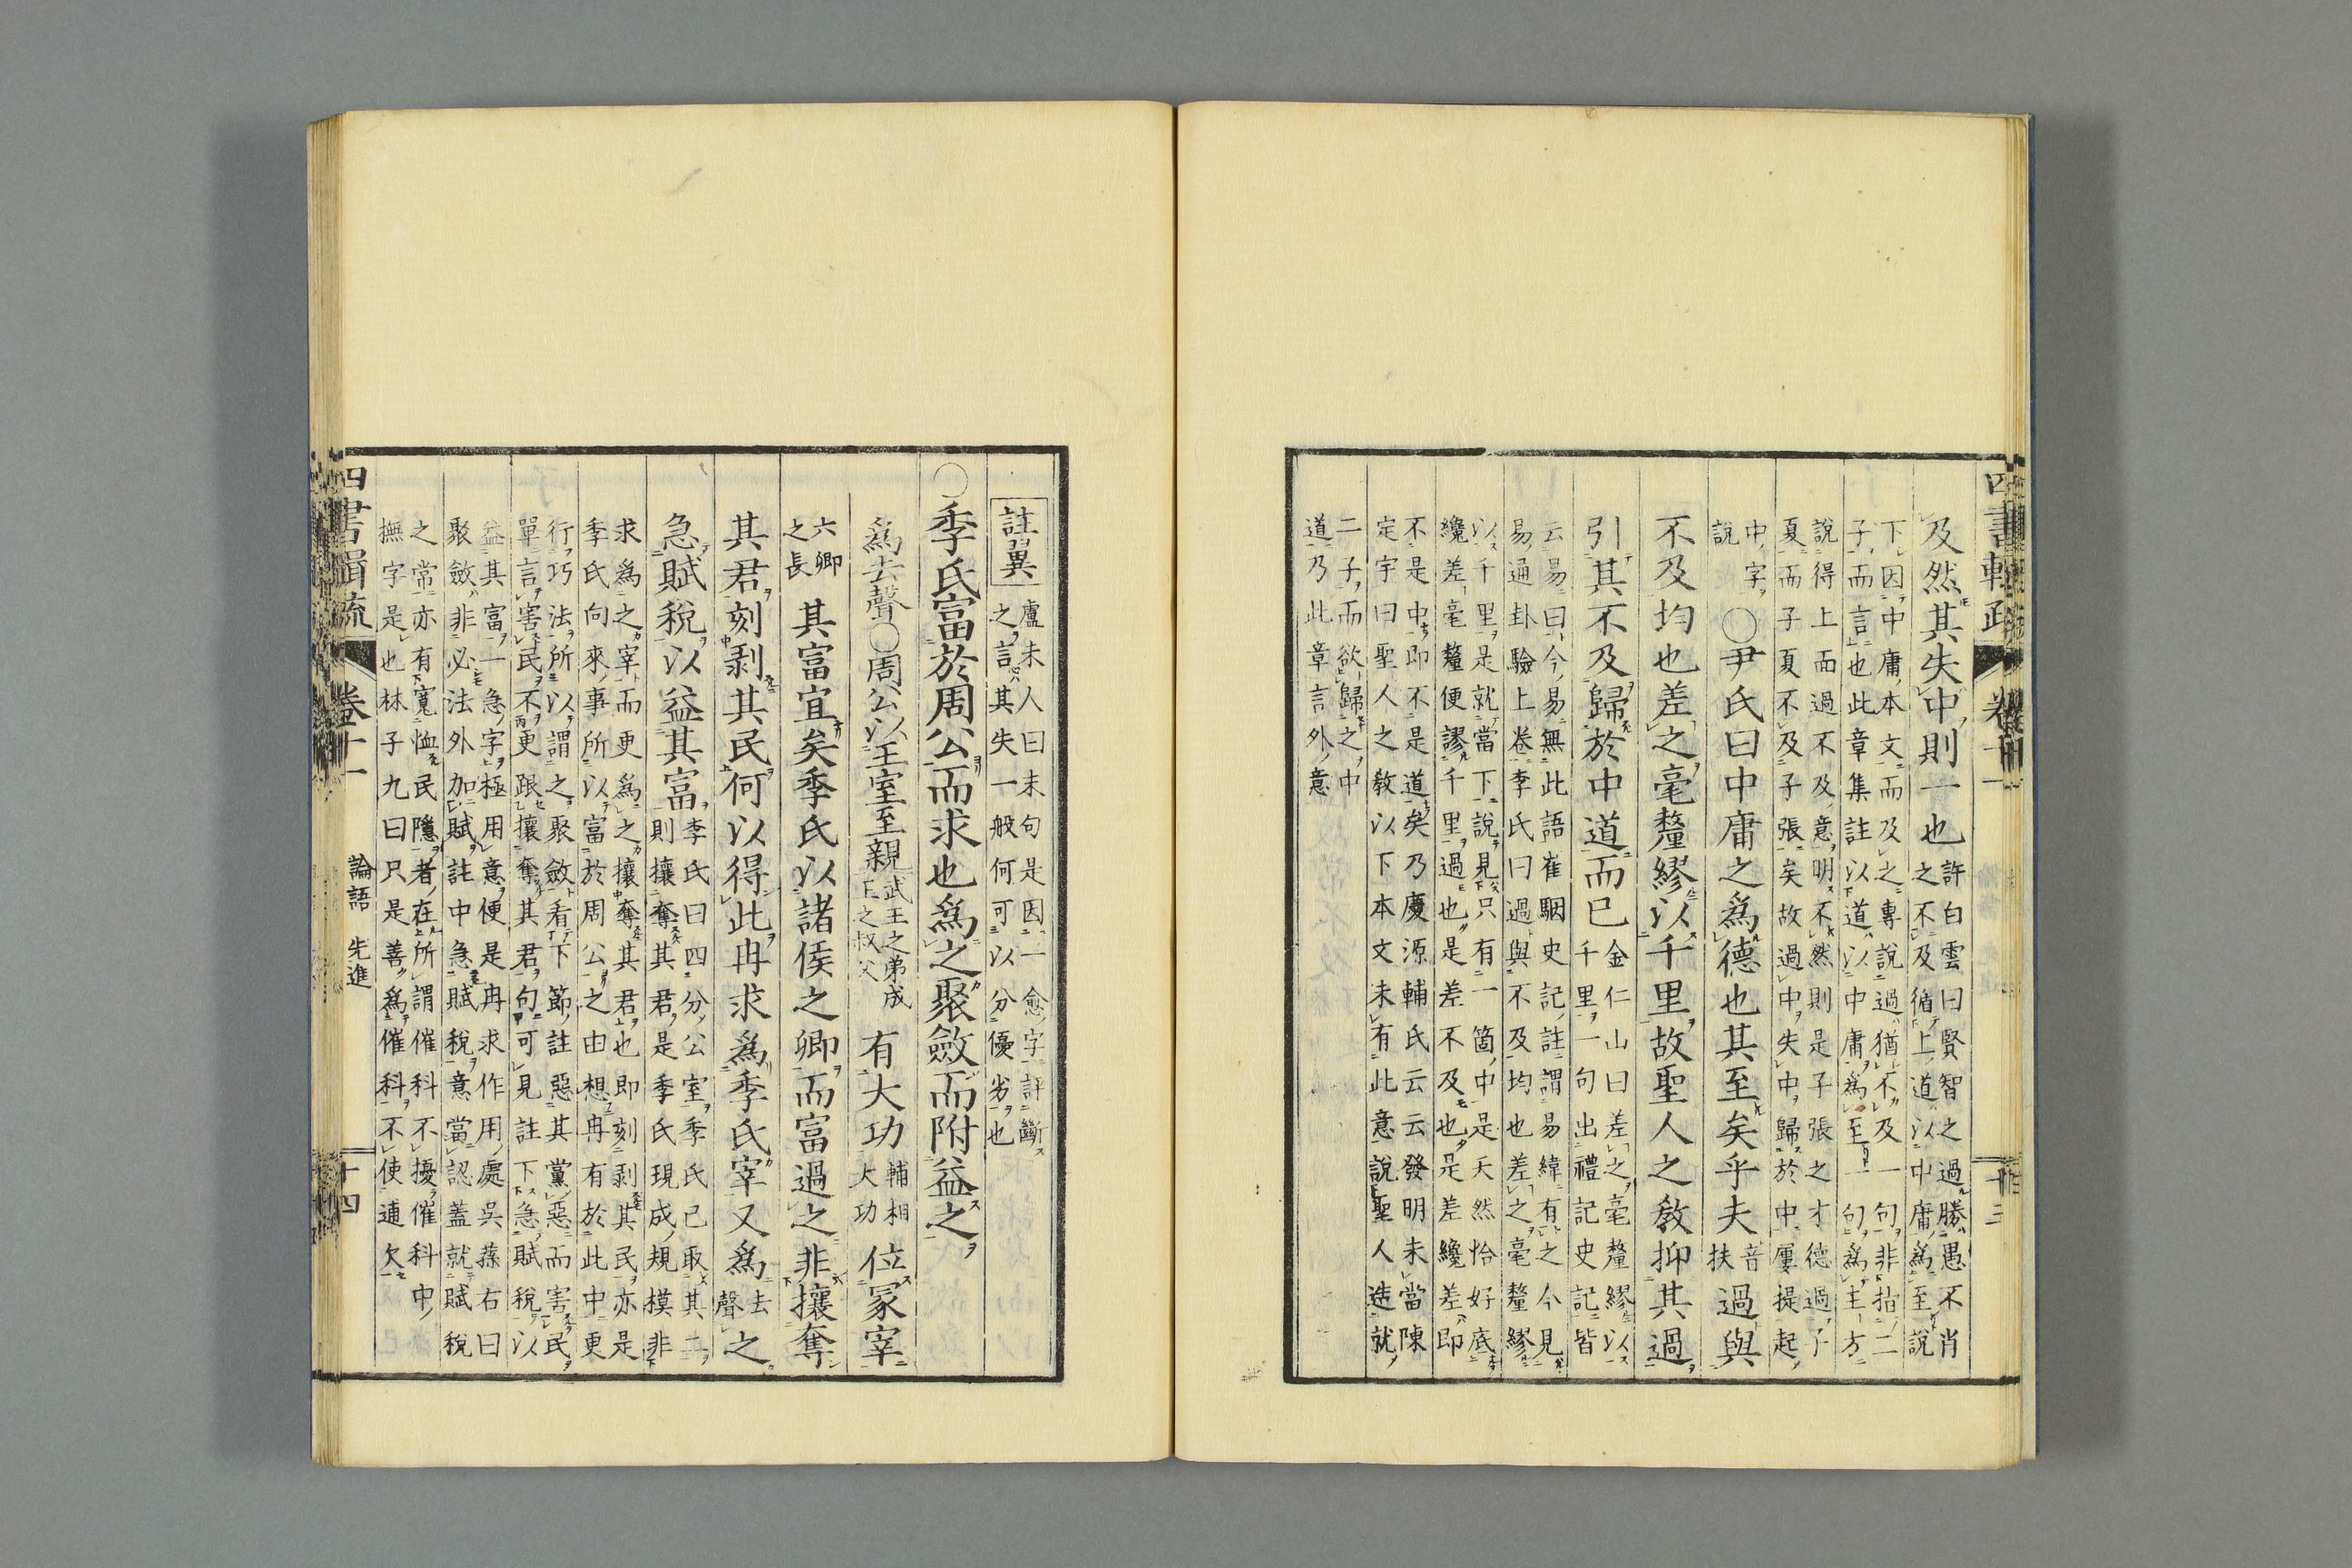 及然其失中則一也 許白雲曰賢智之過勝愚不肖
之不及循上道以中庸為至說
下因中庸本文而及之專說過猶不及一句非指二
子而言也此章集註以道以中庸為至一句為主方
說得上而過不及意明不然則是子張之才德過子
夏而子夏不及子張矣故過中失中歸於中屢提起
中字
說
○尹氏曰中庸之為德也其至矣乎夫 音扶 過與
不及均也差之毫釐繆以千里故聖人之教抑其過
引其不及歸於中道而已 金仁山曰差之毫釐繆以
千里一句出禮記史記皆
云易曰今易無此語崔駰史記註謂易緯有之今見
易通卦驗上卷李氏曰過與不及均也差之毫釐繆
以千里是就當下說見只有一箇中是天然恰好底
纔差毫釐便謬千里過也是差不及也是差纔差即
不是中即不是道矣乃慶源輔氏云云發明未當陳
定宇曰聖人之教以下本文未有此意說聖人造就
二子而欲歸之中
道乃此章言外意
註異 盧未人曰末句是因一愈字評斷
之言其失一般何可以分優劣也
○季氏富於周公而求也為之聚斂而附益之
為去聲○周公以王室至親 武王之弟成
王之叔父 有大功 輔相
大功 位冢宰
六卿
之長 其富宜矣季氏以諸侯之卿而富過之非攘奪
其君刻剥其民何以得此冉求為季氏宰又為 去聲 之
急賦稅以益其富 李氏曰四分公室季氏已取其二
則攘奪其君是季氏現成規模非
求為之宰而更為之攘奪其君也即刻剥其民亦是
季氏向來事所以富於周公之由想冉有於此中更
行巧法所以謂之聚斂看下節註惡其黨惡而害民
單言害民不更跟攘奪其君句可見註下急賦稅以
益其富一急字極用意便是冉求作用處吳蓀右曰
聚斂非必法外加賦註中急賦稅意當認蓋就賦稅
之常亦有寬恤民隱者在所謂催科不擾催科中
撫字是也林子九曰只是善為催科不使逋欠
四書輯疏 卷十一 論語 先進 十四